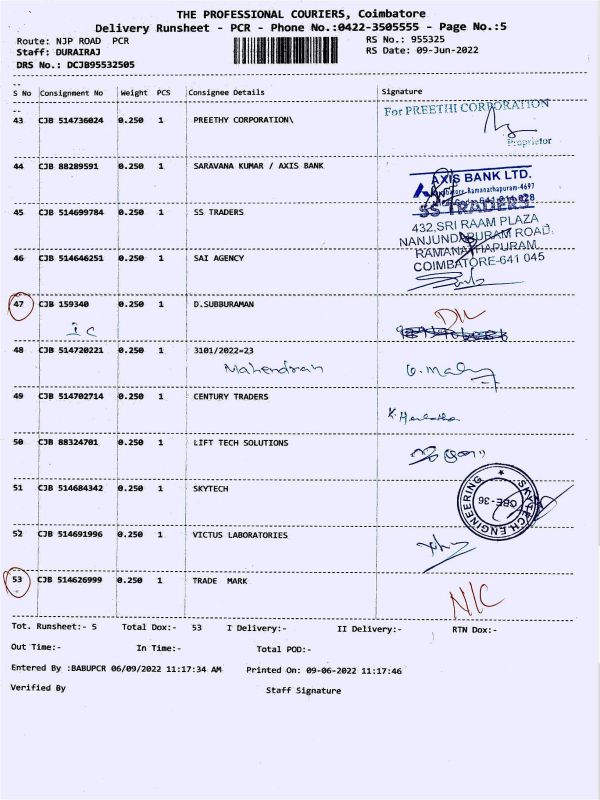 THE PROFESSIONAL COURIERS, Coimbatore
Delivery Runsheet - PCR - Phone No.:0422-3505555 - Page No.:5
Route: NJP ROAD PCR
RS No.: 955325
Staff: DURAIRAJ
RS Date: 09-Jun-2022
DRS No.: DCJB95532505
S No Consignment No Weight PCS Consignee Details Signature
43 CJB 514736024 0.250 1 PREETHY CORPORATION\
For PREETHI CORPORATION
Proprietor
44 CJB 88289591 0.250 1 SARAVANA KUMAR / AXIS BANK
AXIS BANK LTD.
Ramanathapuram-4697
45 CJB 514699784 0.250 1 SS TRADERS
SS TRADERS
432,SRI RAAM PLAZA
NANJUNDAPURAM ROAD,
RAMANATHAPURAM,
COIMBATORE-641 045
46 CJB 514646251 0.250 1 SAI AGENCY
47 CJB 159340 0.250 1 D.SUBBURAMAN
D/L
48 CJB 514720221 0.250 1 3101/2022=23
Mahendran
49 CJB 514702714 0.250 1 CENTURY TRADERS
50 CJB 88324701 0.250 1 LIFT TECH SOLUTIONS
51 CJB 514684342 0.250 1 SKYTECH
SKYTECH ENGINEERING
CBE-36
52 CJB 514691996 0.250 1 VICTUS LABORATORIES
53 CJB 514626999 0.250 1 TRADE MARK
N/C
Tot. Runsheet:- 5 Total Dox:- 53 I Delivery:- II Delivery:- RTN Dox:-
Out Time:- In Time:- Total POD:-
Entered By :BABUPCR 06/09/2022 11:17:34 AM Printed On: 09-06-2022 11:17:46
Verified By Staff Signature